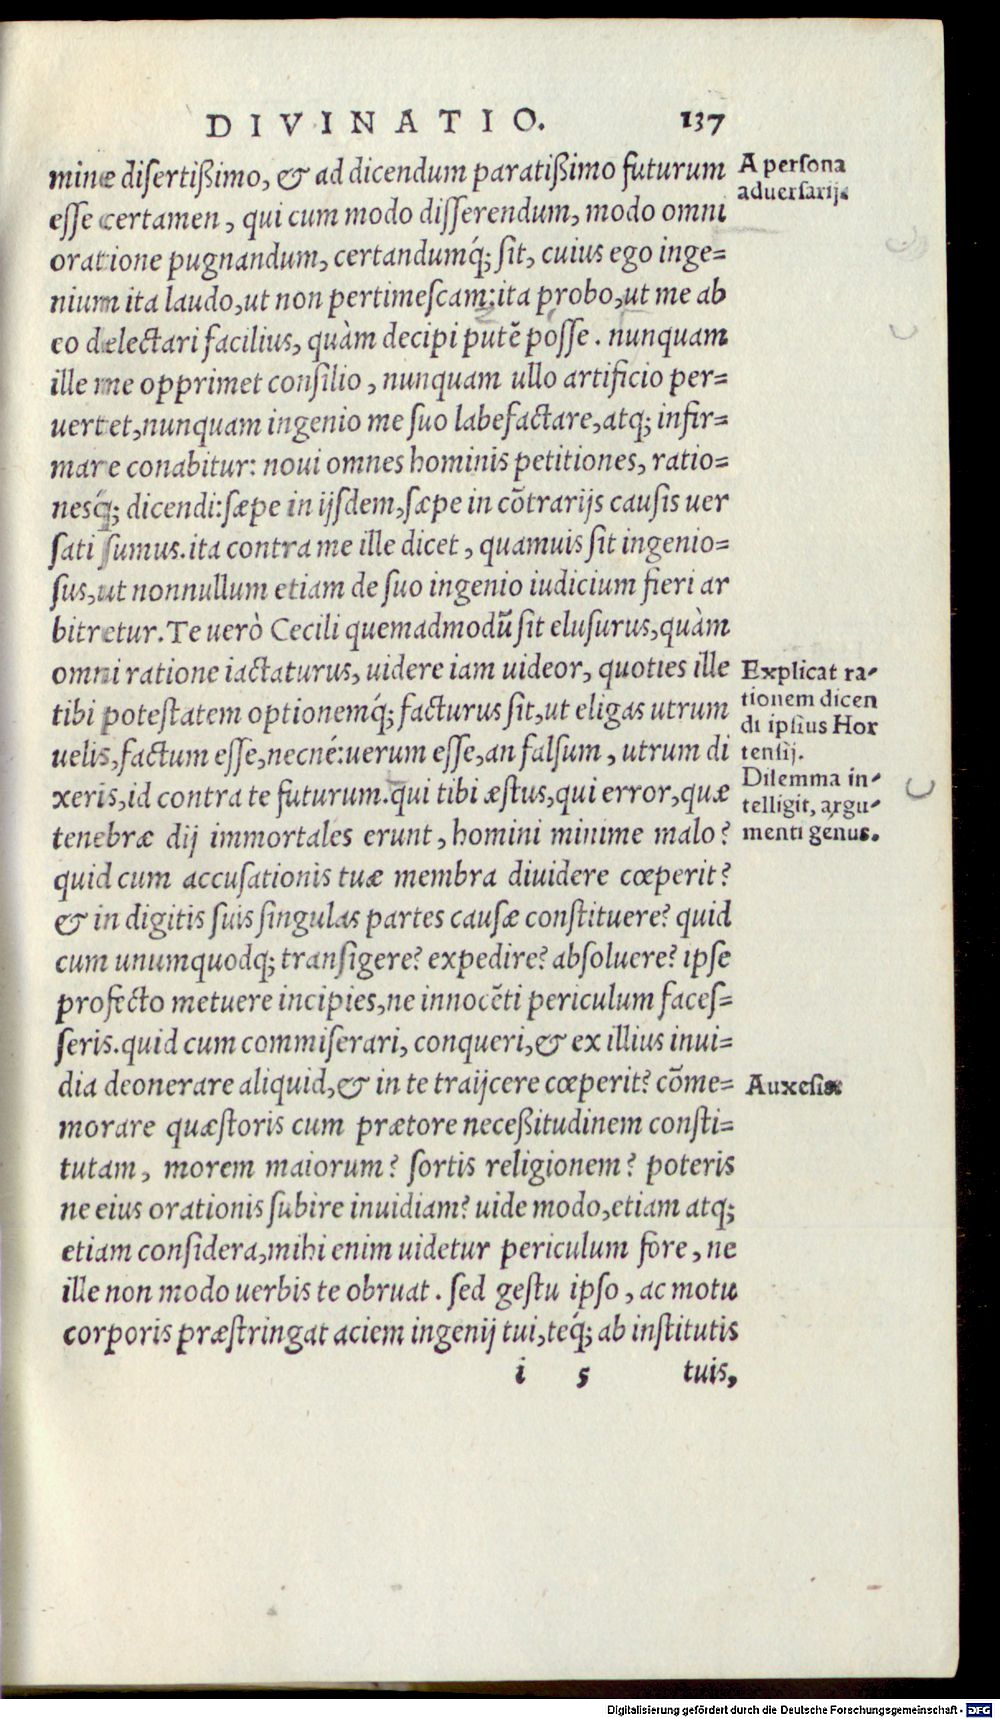 DIVINATIO. 137
minæ disertißimo, & ad dicendum paratißimo futurum
esse certamen, qui cum modo disserendum, modo omni
oratione pugnandum, certandumq́; sit, cuius ego inge=
nium ita laudo, ut non pertimescam: ita probo, ut me ab
eo delectari facilius, quàm decipi putē posse. nunquam
ille me opprimet consilio, nunquam ullo artificio per=
uertet, nunquam ingenio me suo labefactare, atq; infir=
mare conabitur: noui omnes hominis petitiones, ratio=
nesq́; dicendi: sæpe in ijsdem, sæpe in cōtrarijs causis uer
sati sumus. ita contra me ille dicet, quamuis sit ingenio=
sus, ut nonnullum etiam de suo ingenio iudicium fieri ar
bitretur. Te uerò Cecili quemadmodū sit elusurus, quàm
omni ratione iactaturus, uidere iam uideor, quoties ille
tibi potestatem optionemq́; facturus sit, ut eligas utrum
uelis, factum esse, necné: uerum esse, an falsum, utrum di
xeris, id contra te futurum. qui tibi æstus, qui error, quæ
tenebræ dij immortales erunt, homini minime malo?
quid cum accusationis tuæ membra diuidere cœperit?
& in digitis suis singulas partes causæ constituere? quid
cum unumquodq; transigere? expedire? absoluere? ipse
profecto metuere incipies, ne innocēti periculum faces=
seris. quid cum commiserari, conqueri, & ex illius inui=
dia deonerare aliquid, & in te traijcere cœperit? cōme=
morare quæstoris cum prætore neceßitudinem consti=
tutam, morem maiorum? sortis religionem? poteris
ne eius orationis subire inuidiam? uide modo, etiam atq;
etiam considera, mihi enim uidetur periculum fore, ne
ille non modo uerbis te obruat. sed gestu ipso, ac motu
corporis præstringat aciem ingenij tui, teq́; ab institutis
i 5 tuis,
A persona
aduersarij.
Explicat ra-
tionem dicen
di ipsius Hor
tensij.
Dilemma in-
telligit, argu-
menti genus.
Auxesis
Digitalisierung gefördert durch die Deutsche Forschungsgemeinschaft - DFG